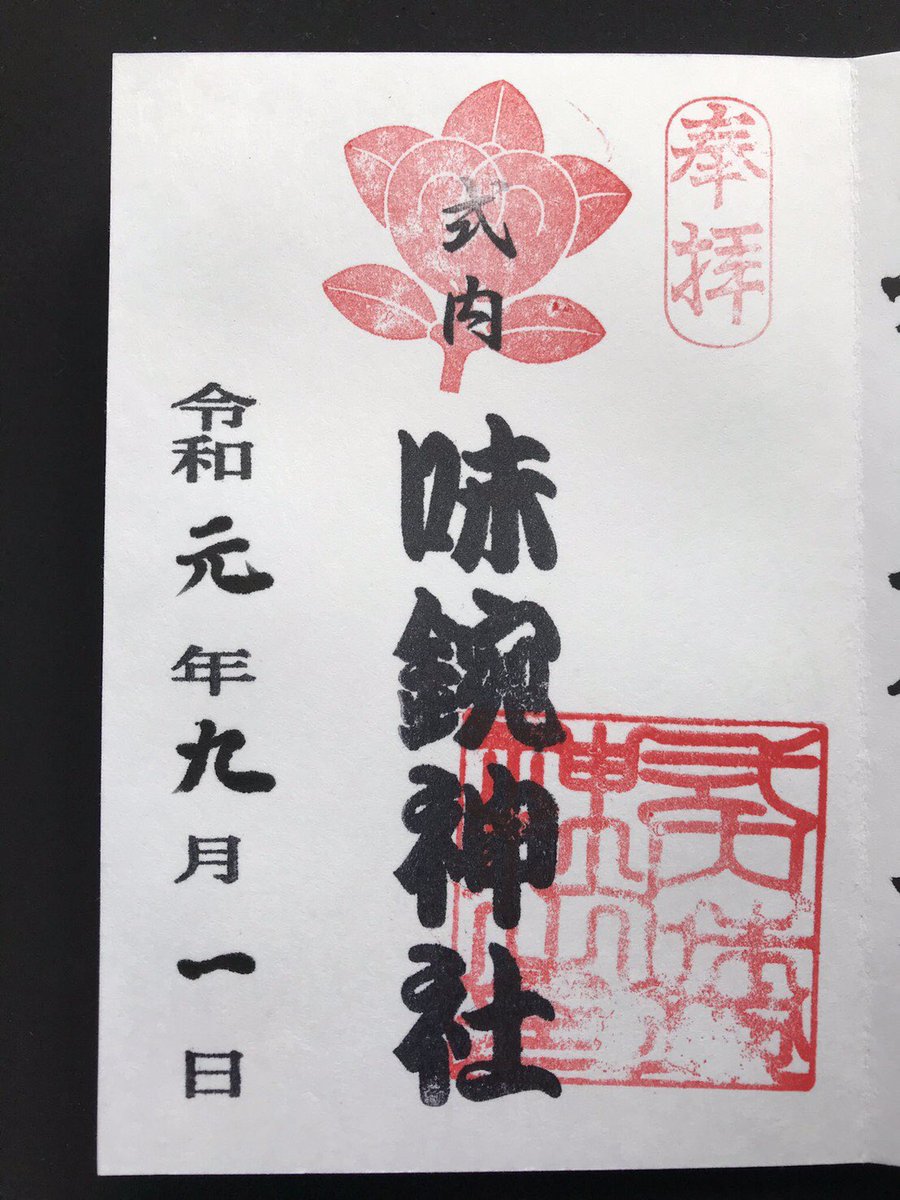 奉拝
式内
味鋺神社
令和元年九月一日